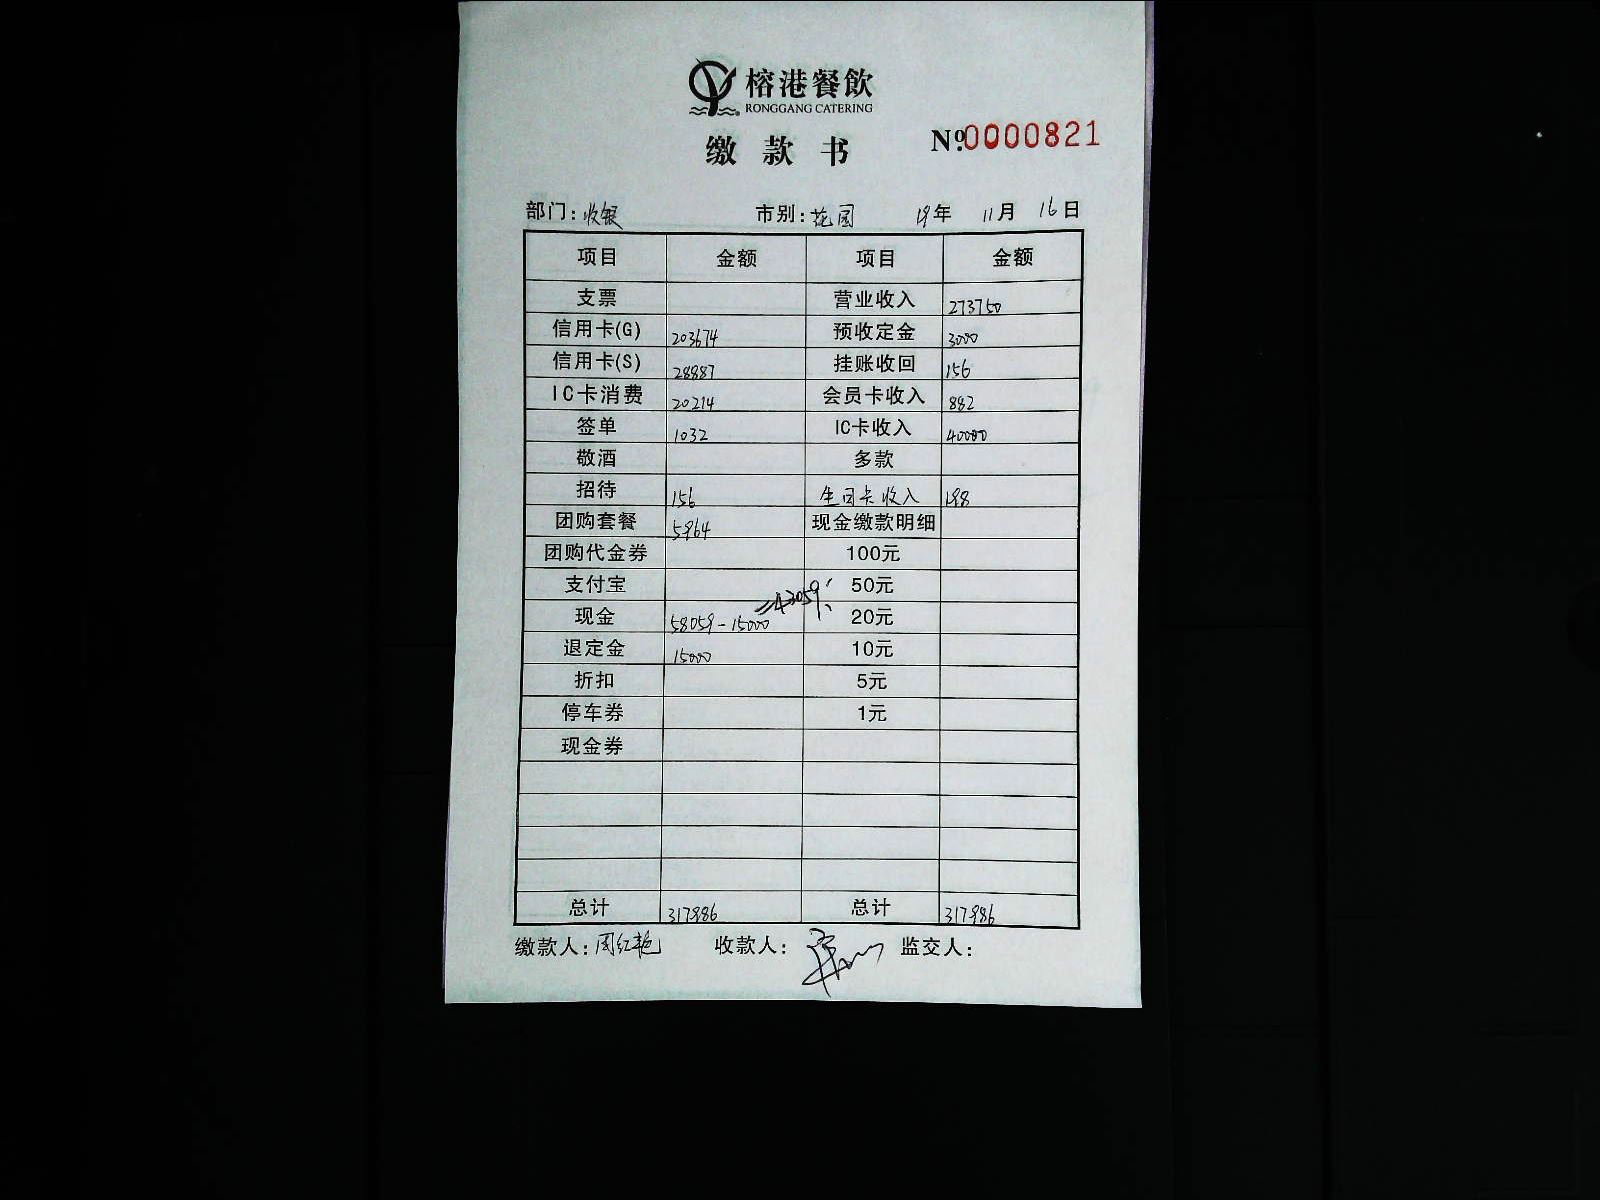 榕港餐飲
RONGGANG CATERING
缴款书 №0000821
部门:收银 市别:花园 19年 11月 16日
项目 金额 项目 金额
支票 营业收入 273750
信用卡(G) 203674 预收定金 3000
信用卡(S) 28887 挂账收回 156
IC卡消费 20214 会员卡收入 882
签单 1032 IC卡收入 40000
敬酒 多款
招待 156 卡收入 198
团购套餐 5964 现金缴款明细
团购代金券 100元
支付宝 50元
现金 58059-15000=43059 20元
退定金 15000 10元
折扣 5元
停车券 1元
现金券
总计 317986 总计 317986
缴款人:周红艳 收款人: 监交人: